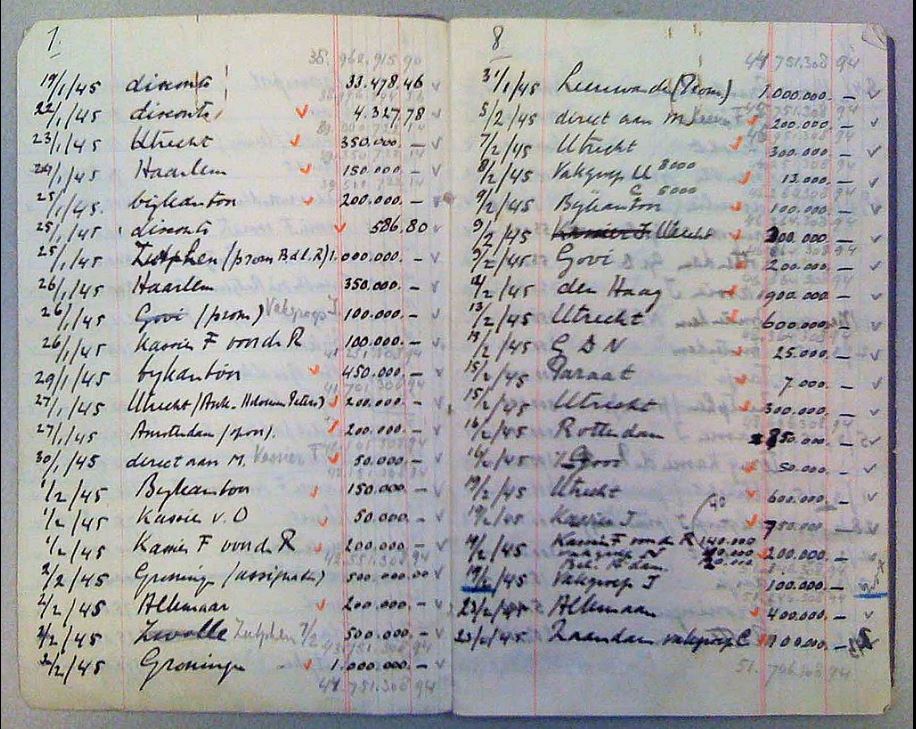 7.
38.962.915.90
19/1/45 disconto 33.478.46 v
22/1/45 disconto v 4.327,78 v
23/1/45 Utrecht v 350.000.— v
24/1/45 Haarlem v 150.000.— v
25/1/45. bijkantoor v 200.000.— v
25/1/45 disconto v 586.80 v
25/1/45 Zutphen (prom Bd.l.R) 1.000.000.— v
26/1/45 Haarlem 350.000.— v
26/1/45 Gooi (prom) Vakgroep J 100.000.— v
26/1/45 Kassier F voor de R 100.000.— v
29/1/45 bijkantoor v 450.000.— v
27/1/45 Utrecht v 200.000.— v
27/1/45 Amsterdam (prom). v 200.000.— v
30/1/45 direct aan M. Kassier F v 50.000.— v
1/2/45 Bijkantoor v 150.000.— v
1/2/45 Kassier v. O v 50.000.— v
1/2/45 Kassier F voor de R v 200.000.— v
2/2/45 Groningen (assignatie) 500.000.00 v
2/2/45 Alkmaar v 200.000.— v
2/2/45 Zwolle Zutphen 7/2 500.000.— v
2/2/45 Groningen v 1.000.000.— v
44.751.308 94
8
44 751.308 94
31/1/45 Leeuwarden (Prom) 1.000.000.— v
5/2/45 direct aan M v 200.000.— v
7/2/45 Utrecht v 300.000.— v
8/2/45 Vakgroep U 8000 13.000.— v
C 5000
9/2/45 Bijkantoor v 100.000.— v
9/2/45 Kassier J. Utrecht v 300.000.— v
9/2/45 Gooi v 200.000.— v
12/2/45 den Haag v 900.000.— v
13/2/45 Utrecht v 600.000.— v
13/2/45 G D N v 25.000.— v
15/2/45 Paraat v 7.000.— v
15/2/45 Utrecht v 300.000.— v
16/2/45 Rotterdam 850.000.— v
Gooi v 50.000.— v
19/2/45 Utrecht v 600.000.— v
19/2/45 Kassier J v 750.000.— v
/2/45 Kassier F voor de R 140.000 v 200.000.— v
vakgroep N
19/2/45 Vakgroep J 100.000.—
23/2/45 Alkmaar v 400.000.— v
23/2/45 Zaandam vakgroep C 100.000.—
51.796.308 94